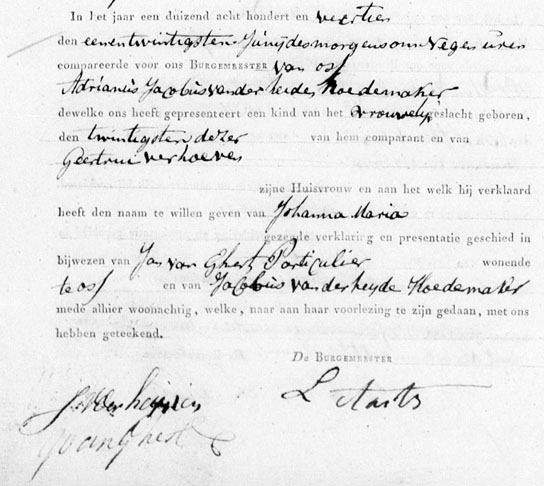 In het jaar een duizend acht hondert en veertien
den eenentwintigsten Junij des morgens om Negen uren
compareerde voor ons Burgemeester van os
Adrianus Jacobus van der heides hoedemaker
dewelke ons heeft gepresenteert een kind van het vrouwelyk geslacht geboren,
den twintigsten dezer van hem comparant en van
Geertrui verhoeves
zijne Huisvrouw en aan het welk hij verklaard
heeft den naam te willen geven van Johanna Maria
gezegde verklaring en presentatie geschied in
bijwezen van Jan van Ghert Particulier wonende
te os en van Jacobus van der heyde Hoedemaker
mede alhier woonachtig, welke, naar aan haar voorlezing te zijn gedaan, met ons
hebben geteekend.
De Burgemeester
L Aarts
J v der heijden
J van Ghert